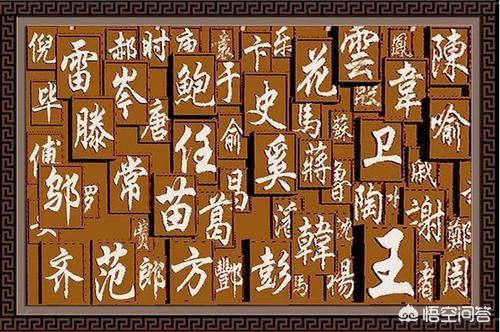 倪
郝
时
庙
卞
乐
雲
鳳
陳
雷
岑
鲍
于
花
韋
毕
滕
唐
俞
史
馬
蘇
喻
甫
任
奚
蔣
卫
戚
邬
罗
常
苗
葛
昌
魯
陶
水
謝
齐
范
郎
方
酆
彭
韓
馬
楊
王
鄭
周
悟空问答